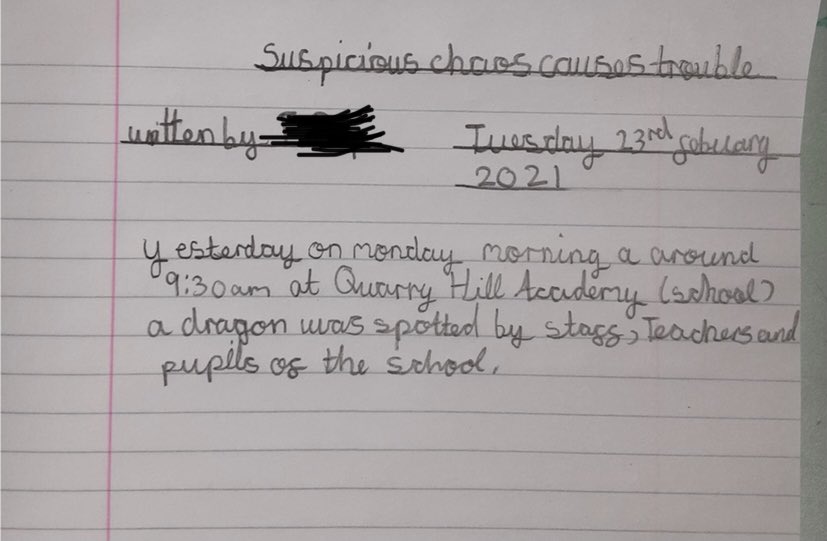 Suspicious chaos causes trouble
written by
Tuesday 23rd febuary
2021
Yesterday on monday morning a around
9:30am at Quarry Hill Academy (school)
a dragon was spotted by staff, Teachers and
pupils of the school.